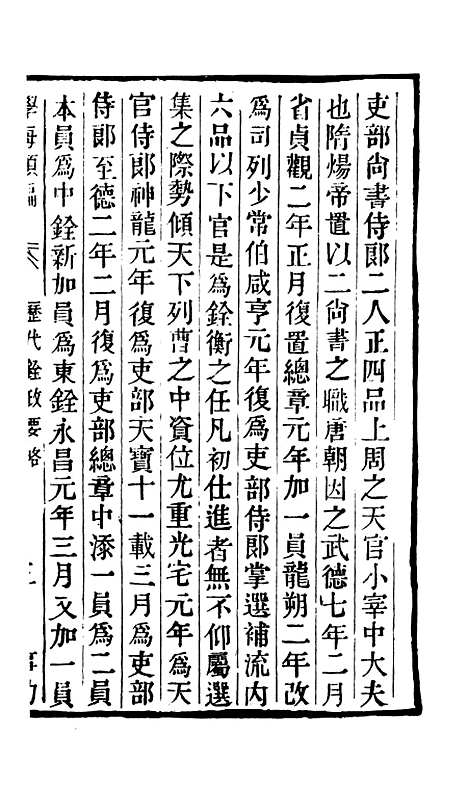 吏部尙書侍郞二人正四品上周之天官小宰中大夫
也隋煬帝置以二尙書之職唐朝因之武德七年二月
省貞觀二年正月復置總章元年加一員龍朔二年改
爲司列少常伯咸亨元年復爲吏部侍郞掌選補流內
六品以下官是爲銓衡之任凡初仕進者無不仰屬選
集之際勢傾天下列曹之中資位尤重光宅元年爲天
官侍郞神龍元年復爲吏部天寶十一載三月爲吏部
侍郞至德二年二月復爲吏部總章中添一員爲二員
本員爲中銓新加員爲東銓永昌元年三月又加一員
學海類編 歷代銓政要略